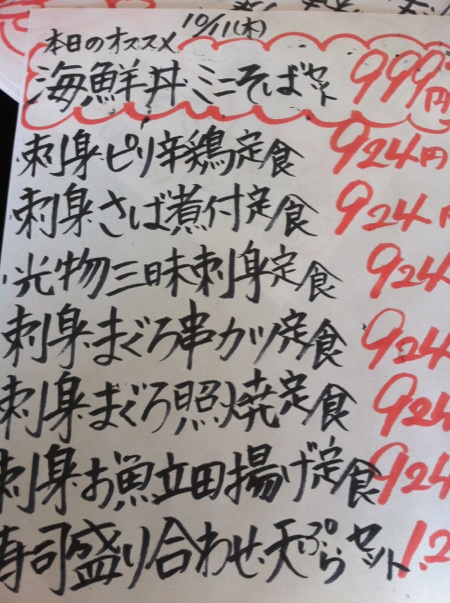 10/11(木)
本日のオススメ
海鮮丼ミニそばセット 999円
・刺身・ピリ辛鶏定食 924円
・刺身・さば煮付定食 924円
・光物三昧刺身定食 924
刺身・まぐろ串カツ定食 924
刺身・まぐろ照焼定食 924
刺身・お魚立田揚げ定食 924
寿司盛り合わせ・天ぷらセット 1.2